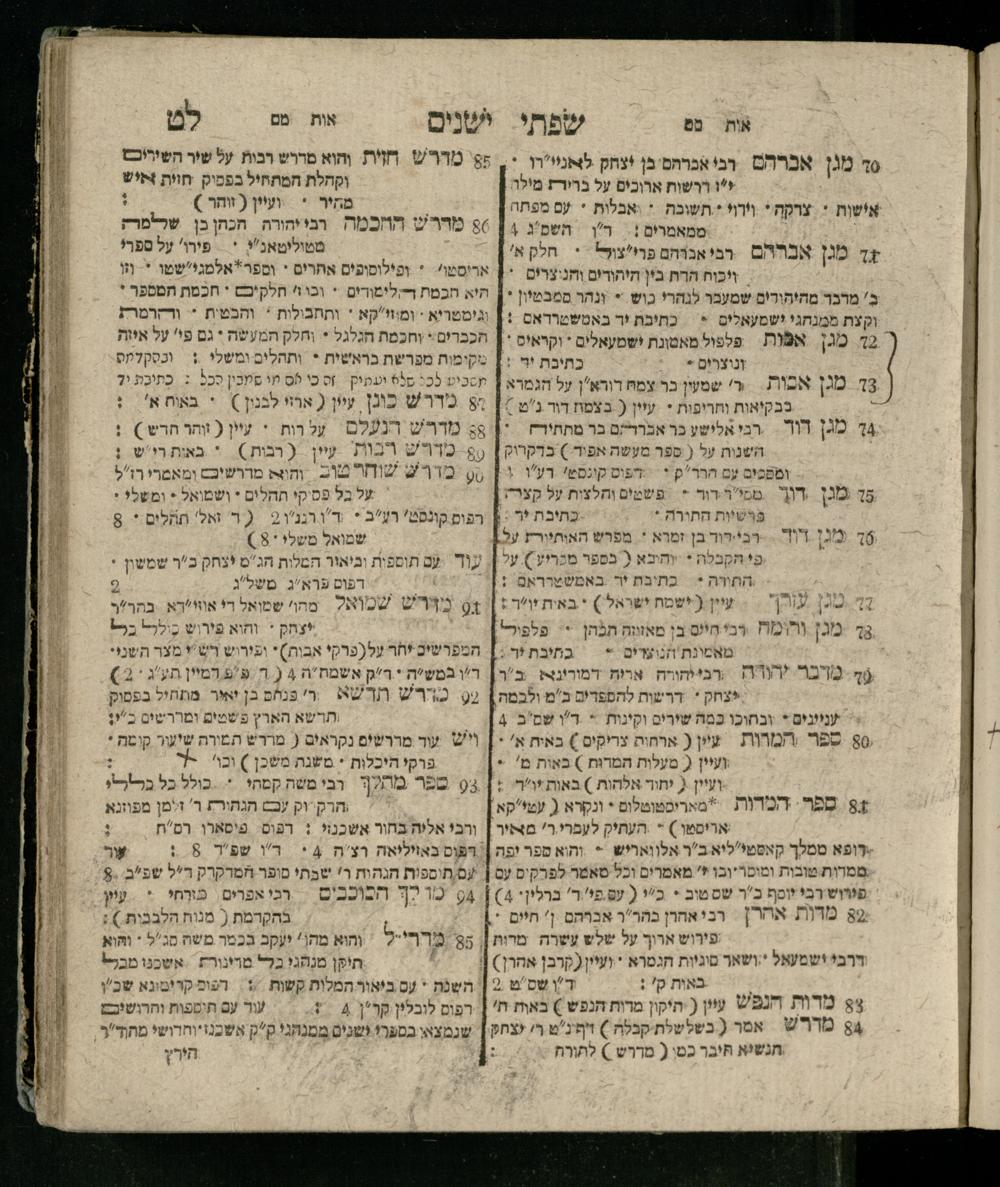 אות מם שפתי ישנים אות מם לט
70 מגן אברהם רבי אברהם בן יצחק לאנייי״רו •
י״ז דרשות ארוכים על ברית מילה
אישות • צדקה • וידוי • תשובה • אבלות • עם מפתח
ממאמרים : ד״ו השס״ג 4
71 מגן אברהם רבי אברהם פרי״צול • חלק א׳
ויכוח הדת בין היהודים והנוצרים •
ב׳ מדבר מהיהודים שמעבר לנהרי כוש • ונהר סמבטיון •
וקצת ממנהגי ישמעאלים • כתיבת יד באמשטרדאם :
72 מגן אבות פלפול מאמונת ישמעאלים • וקראים •
ונוצרים • כתיבת יד :
73 מגן אבות ר׳ שמעון בר צמח דורא״ן על הגמרא
בבקיאות וחריפות • עיין ( בצמח דוד נ״ט )
74 מגן דוד רבי אלישע בר אברהם בר מתתיה •
השגות על ( ספר מעשה אפוד ) בדקדוק
ומסכים עם הרד״ק • דפוס קונסט׳ רע״ז
75 מגן דוד • פשטים והלצות על קצת
פרשיות התורה • כתיבת יד :
76 מגן דוד רבי דוד בן זמרא • מפרש האותיות על
פי הקבלה • והיבא ( בספר מכריע ) על
התורה • כתיבת יד באמשטרדאם :
77 מגן עוזרך עיין ( ישמח ישראל ) • באות יו״ד :
78 מגן ורומח רבי חיים בן מאזוזה הכהן • פלפול
מאמונת הנוצרים • כתיבת יד :
79 מדבר יהודה רבי יהודה אריה דמורינא ב״ר
יצחק • דרשות להספדים ב״מ ולכמה
עניינים • ובתוכו כמה שירים וקינות • ד״ו שס״ב 4
80 ספר המדות עיין ( ארחות צדיקים ) באות א׳ •
ועיין ( מעלות המדות ) באות מ׳ •
ועיין ( יחוד אלהות ) באות יו״ד :
81 ספר המדות *מאריסטוטלוס • ונקרא ( עטי״קא
אריסטו ) • העתיק לעברי ר׳ מאיר
רופא ממלך קאסטי״ליא ב״ר אלוואריש • והוא ספר יפה
ממדות טובות ומוסר ובו י׳ מאמרים וכל מאמר לפרקים עם
פירוש רבי יוסף ב״ר שם טוב • כ״י ( עם פי׳ ד׳ ברלין • 4 )
82 מדות אהרן רבי אהרן בהר״ר אברהם ן׳ חיים •
פירוש ארוך על שלש עשרה מדות
דרבי ישמעאל • ושאר סוגיות הגמרא • ועיין ( קרבן אהרן )
באות ק׳ : ד״ו שס״ט 2
83 מדות הנפש עיין ( תיקון מדות הנפש ) באות ת׳
84 מדרש אמר ( בשלשלת קבלה ) דף נ״ט ר׳ יצחק
הנשיא חיבר כמו ( מדרש ) לתורה :
85 מדרש חזית והוא מדרש רבות על שיר השירים
וקהלת המתחיל בפסוק חזית איש
מהיר • ועיין ( זוהר ) :
86 מדרש החכמה רבי יהודה הכהן בן שלמה
מטוליטאנ״י • פירו׳ על ספרי
אריסטו׳ • ופילוסופים אחרים • וספר *אלמגי״שטו • וזו
היא חכמת הלימודים • ובו ז׳ חלקים • חכמת המספר •
וגימטריא • ומוזי״קא • ותחבולות • והבטית • והרמת
הכבדים • וחכמת הגלגל • וחלק המעשה • גם פי׳ על איזה
מקומות מפרשת בראשית • ותהלים ומשלי : ובהקדמה
תשביע לכל שלא יעתיק זה כי אם מי שמבין הכל : כתיבת יד
87 מדרש כונן עיין ( ארזי לבנון ) • באות א׳ :
88 מדרש הנעלם על רות • עיין ( זוהר חדש ) :
89 מדרש רבות עיין ( רבות ) • באות רי״ש :
90 מדרש שוחר טוב והוא מדרשים ומאמרי רז״ל
על כל פסוקי תהלים • ושמואל • ומשלי •
דפוס קונסט׳ רע״ב • ד״ו רנג״ז 2 ( ד׳ זאל׳ תהלים • 8
שמואל משלי • 8 )
עוד עם תוספת וביאור המלות הג״מ יצחק ב״ר שמשון •
דפוס פרא״ג משל״ג 2
91 מדרש שמואל מהו׳ שמואל די אוזי״דא בהר״ר
יצחק • והוא פירוש כולל כל
המפרשים יחד על ( פרקי אבות ) • ופירוש רש״י מצד השני •
ד״ו במש״ה • ד״ק אשמח״ה 4 ( ד׳ פ״פ דמיין תע״ג • 2 )
92 מדרש תדשא ר׳ פנחס בן יאיר מתחיל בפסוק
תדשא הארץ פשטים ומדרשים כ״י :
ויש עוד מדרשים נקראים ( מדרש תמורה שיעור קומה •
פרקי היכלות • משנת משכן ) וכו׳ :
93 ספר מהלך רבי משה קמחי • כולל כל כללי
הדקדוק עם הגהות ר׳ זלמן מפוזנא
ורבי אליה בחור אשכנזי : דפוס פיסארו רס״ח :
דפוס באזיליאה רצ״ה 4 • ד״ו שפ״ד 8 : עוד
עם תוספות הגהות ר׳ שבתי סופר המדקדק ד״ל שפ״ב 8
94 מהלך הכוכבים רבי אפרים מזרחי • עיין
בהקדמת ( מנוח הלבבות ) :
85 מהרי״ל והוא מהו׳ יעקב בכמר משה סג״ל • והוא
תיקן מנהגי כל מדינות אשכנז מכל
השנה • עם ביאור המלות קשות : דפוס קרימונא שכ״ו
דפוס לובלין קר״ן 4 : עוד עם תוספות וחדושים
שנמצאו בספרי ישנים ממנהגי ק״ק אשכנז וחדושי מהד״ר
הירץ